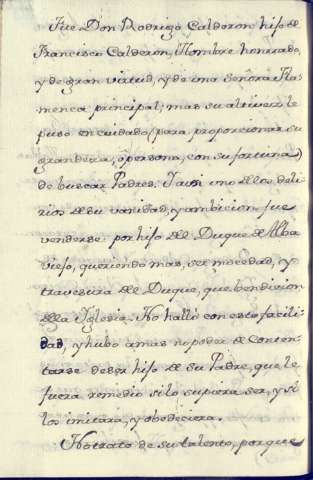 Fue Don Rodrigo Calderon hijo de
Francisco Calderon, Hombre honrrado,
y de gran virtud, y de una señora Fla-
menca principal; mas su altivez le
puso en cuidado (para proporcionar su
grandeza, ô persona, con su fortuna)
de buscar Padres. I assi uno de los deli-
rios de su vanidad, y ambicion fue
venderse por hijo del Duque de Alba
viejo, queriendo mas, ser mocedad, y
travesura del Duque, que bendicion
de la Iglesia. No halló con esto facili-
dad, y hubo a mas no poder de conten-
tarse de ser hijo de su Padre, que le
fuera remedio si lo supiera ser, y si
los imitara, y obedeciera.
No trato de su talento, porque